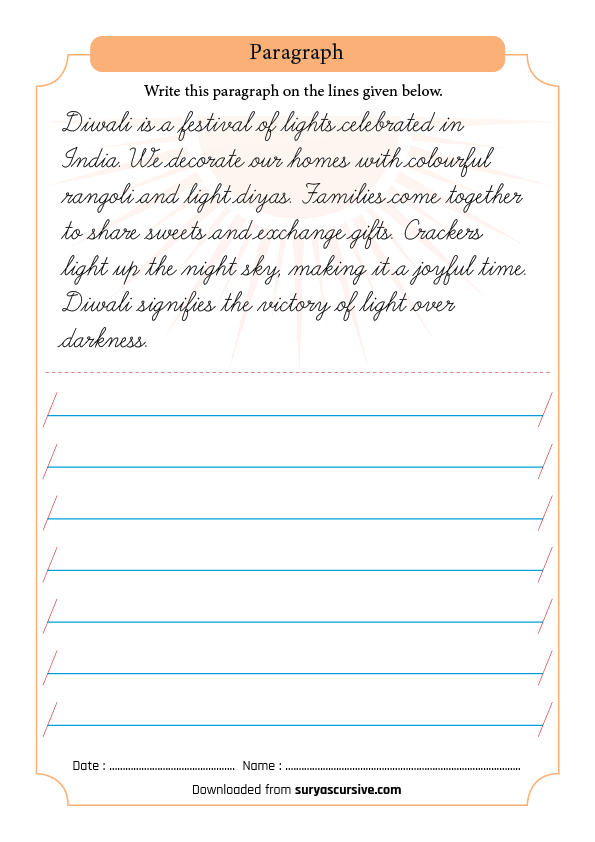 Paragraph
Write this paragraph on the lines given below.
Diwali is a festival of lights celebrated in
India. We decorate our homes with colourful
rangoli and light diyas. Families come together
to share sweets and exchange gifts. Crackers
light up the night sky, making it a joyful time.
Diwali signifies the victory of light over
darkness.
Date : ............................................... Name : ........................................................................................
Downloaded from suryascursive.com